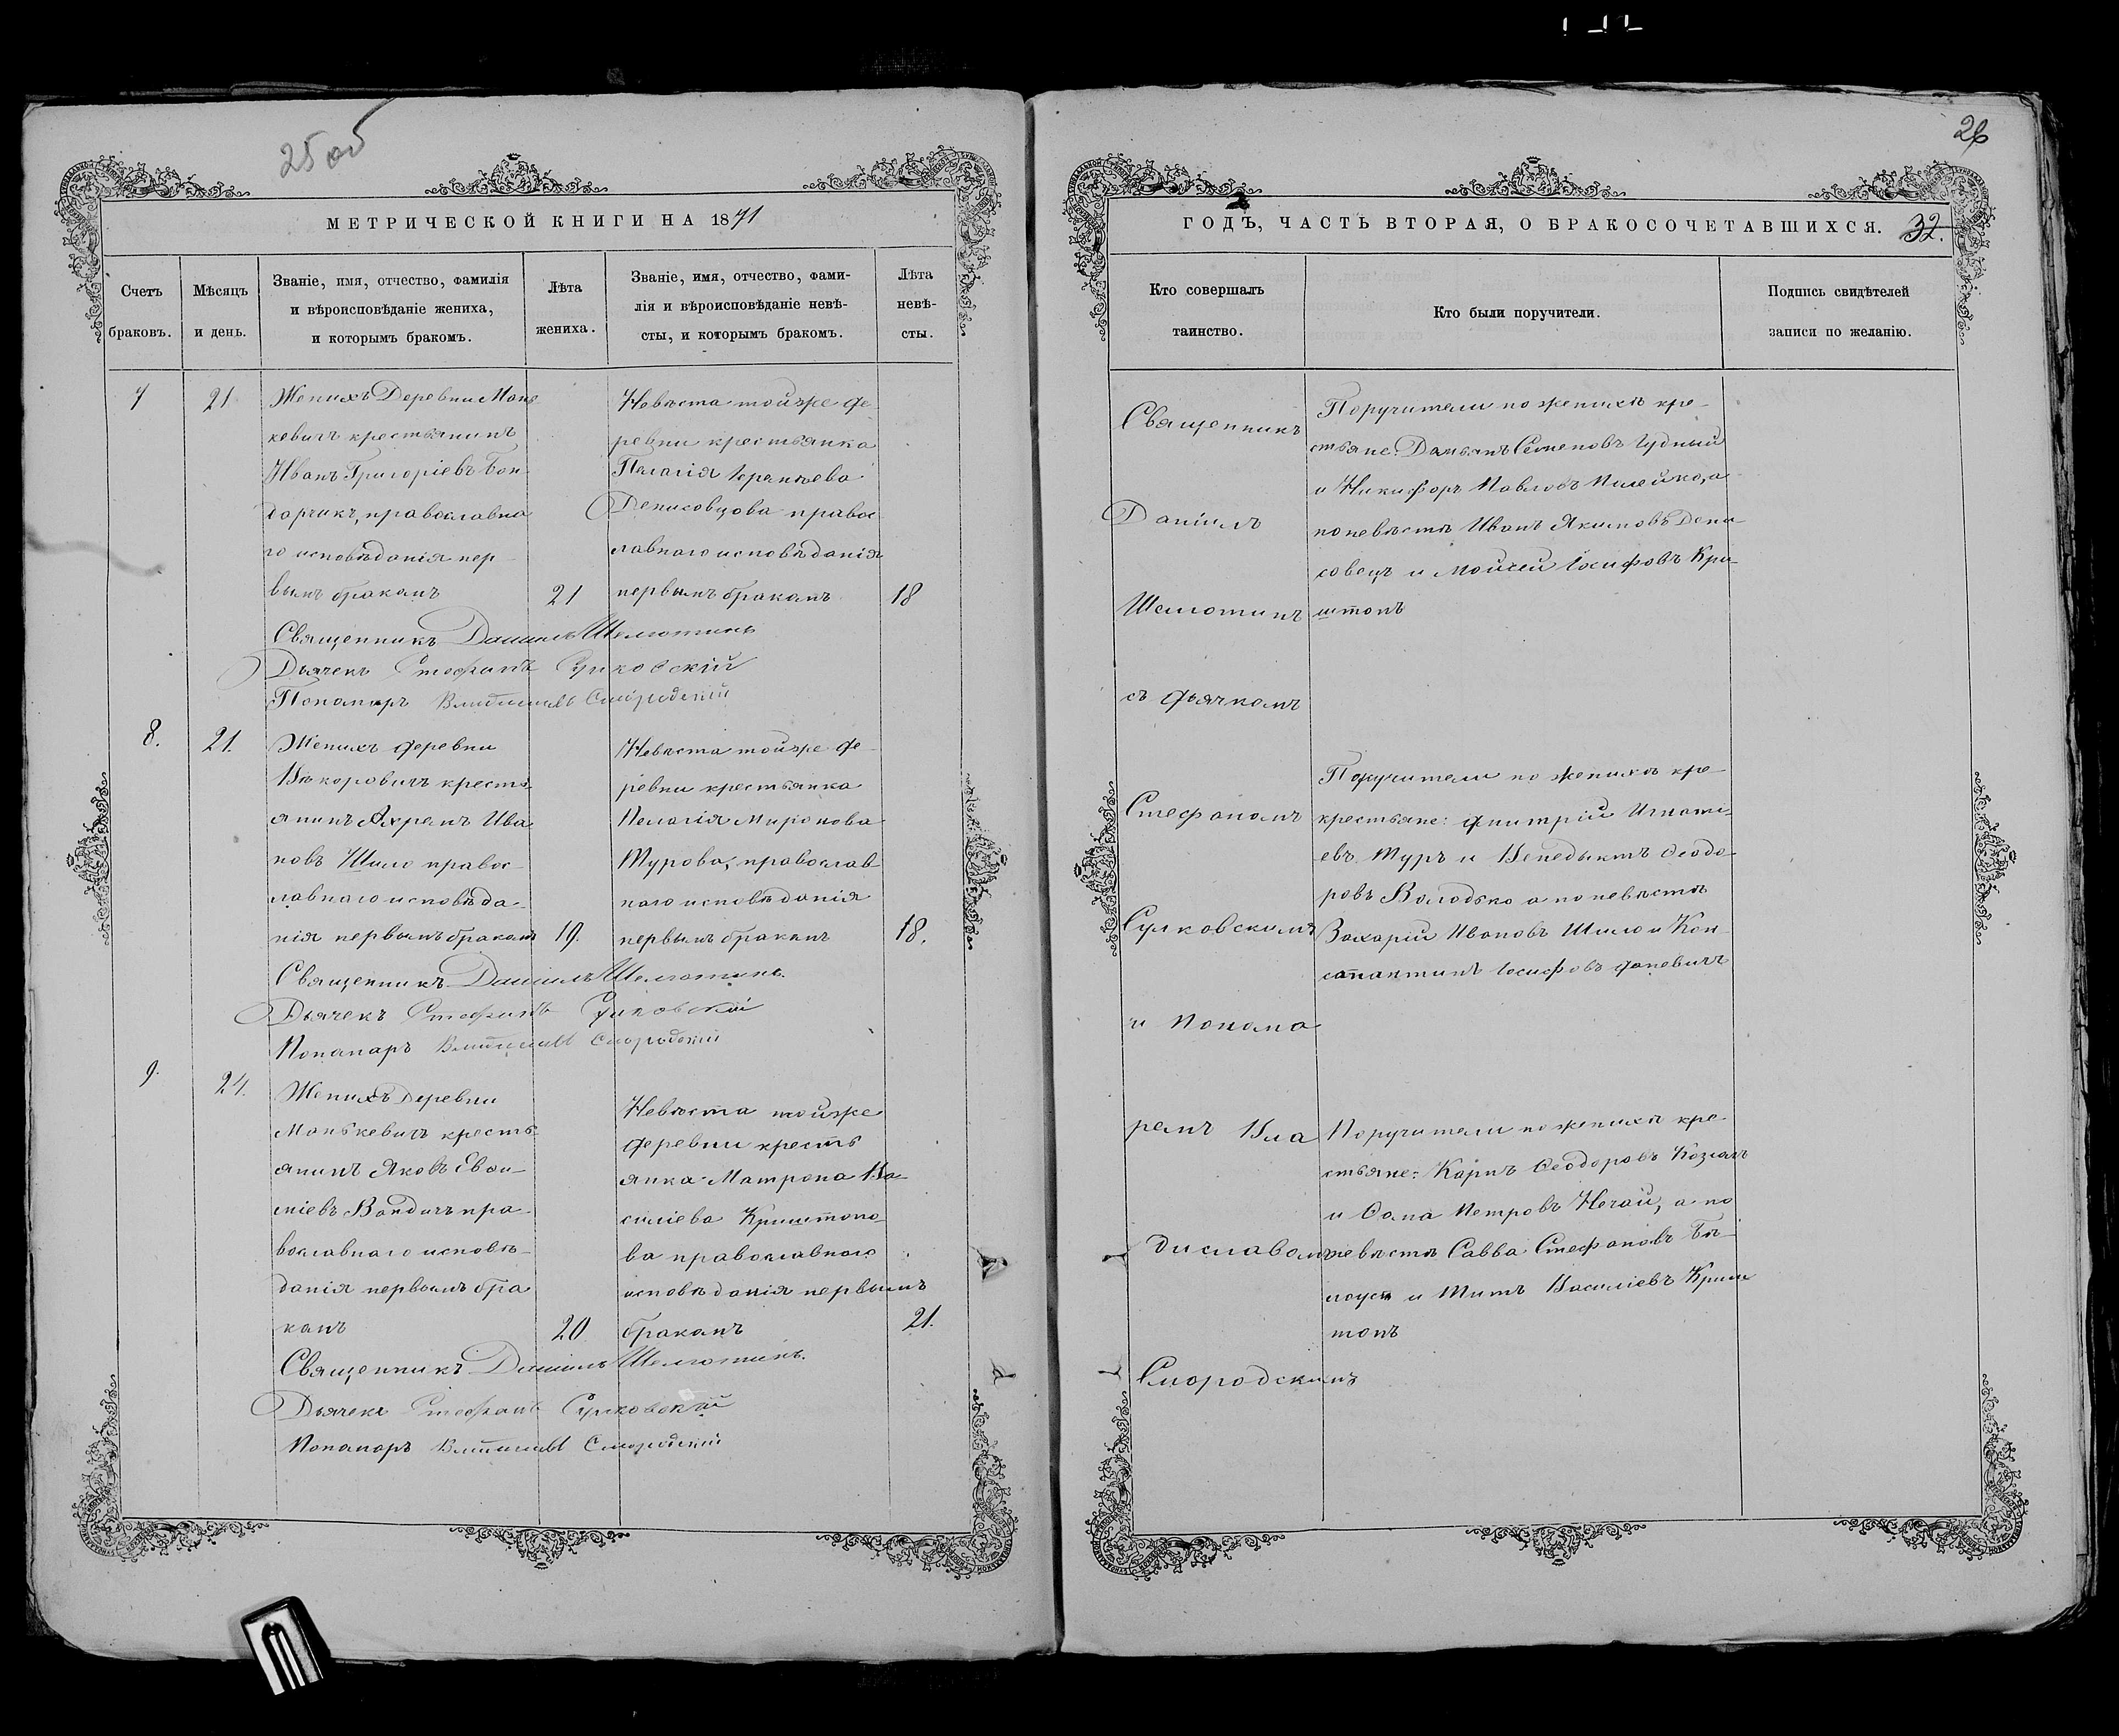 25 об
МЕТРИЧЕСКОЙ КНИГИ НА 1871
Счетъ браковъ.
Мѣсяцъ и день.
Званіе, имя, отчество, фамилія
и вѣроисповѣданіе жениха,
и которымъ бракомъ.
Лѣта жениха.
Званіе, имя, отчество, фами-
лія и вѣроисповѣданіе невѣ-
сты, и которымъ бракомъ.
Лѣта невѣ-
сты.
7
21
Женихъ Деревни Мань
кевичъ крестьянинъ
Иванъ Григоріевъ Бон
дарчикъ, православна
го исповѣданія пер
вымъ бракомъ
21
Невѣста тойже де
ревни крестьянка
Пелагія
Денисовцова правос
лавнаго исповѣданія
первымъ бракомъ
18
Священникъ Даніилъ Шелютинъ
Дьячекъ Стефанъ Сулковскій
Пономарь Владиславъ Смородскій
8.
21.
Женихъ деревни
Викоровичъ кресть
янинъ Ахремъ Ива
новъ Шило правос
лавнаго исповѣда-
нія первымъ бракомъ
19.
Невѣста тойже де
ревни крестьянка
Пелагія Миронова
Турова, православ
наго исповѣданія
первымъ бракомъ
18.
Священникъ Даніилъ Шелютинъ.
Дьячекъ Стефанъ Сулковскій
Пономарь Владиславъ Смородскій
9.
24.
Женихъ Деревни
Манькевичъ кресть
янинъ Яковъ Евои-
міевъ Вандичъ пра
вославнаго исповѣ-
данія первымъ бра
комъ
20
Невѣста тойже
деревни кресть
янка Матрона Ва-
силіева Криштопо-
ва православнаго
исповѣданія первымъ
бракомъ
21.
Священникъ Даніилъ Шелютинъ.
Дьячекъ Стефанъ Сулковскій
Пономарь Владиславъ Смородскій
26
ГОДЪ, ЧАСТЬ ВТОРАЯ, О БРАКОСОЧЕТАВШИХСЯ. 32.
Кто совершалъ
таинство.
Кто были поручители.
Подпись свидѣтелей
записи по желанію.
Священникъ
Даніилъ
Шелютинъ
съ дьячкомъ
Стефаномъ
Сулковскимъ
и Понома
ремъ Вла
диславомъ
Смородскимъ
Поручители по женихѣ кре-
стьяне: Даміанъ Семеновъ Чудный
и Никифоръ Павловъ Пилейко, а
по невѣстѣ Иванъ Якимовъ Дени-
совецъ и Мойсей Іосифовъ Кри-
штопъ
Поручители по женихѣ кре-
крестьяне: Дмитрій Игнати-
евъ Туръ и Венедыктъ Ѳеодо-
ровъ Володько а по невѣстѣ
Захарій Ивановъ Шило и Кон-
стантинъ Іосифовъ
Поручители по женихѣ кре-
стьяне: Карпъ Ѳеодоровъ Козлачъ
и Ѳома Петровъ Нечай, а по
невѣстѣ Савва Стефановъ Бѣ-
лоусъ и Титъ Василіевъ Криш
топъ